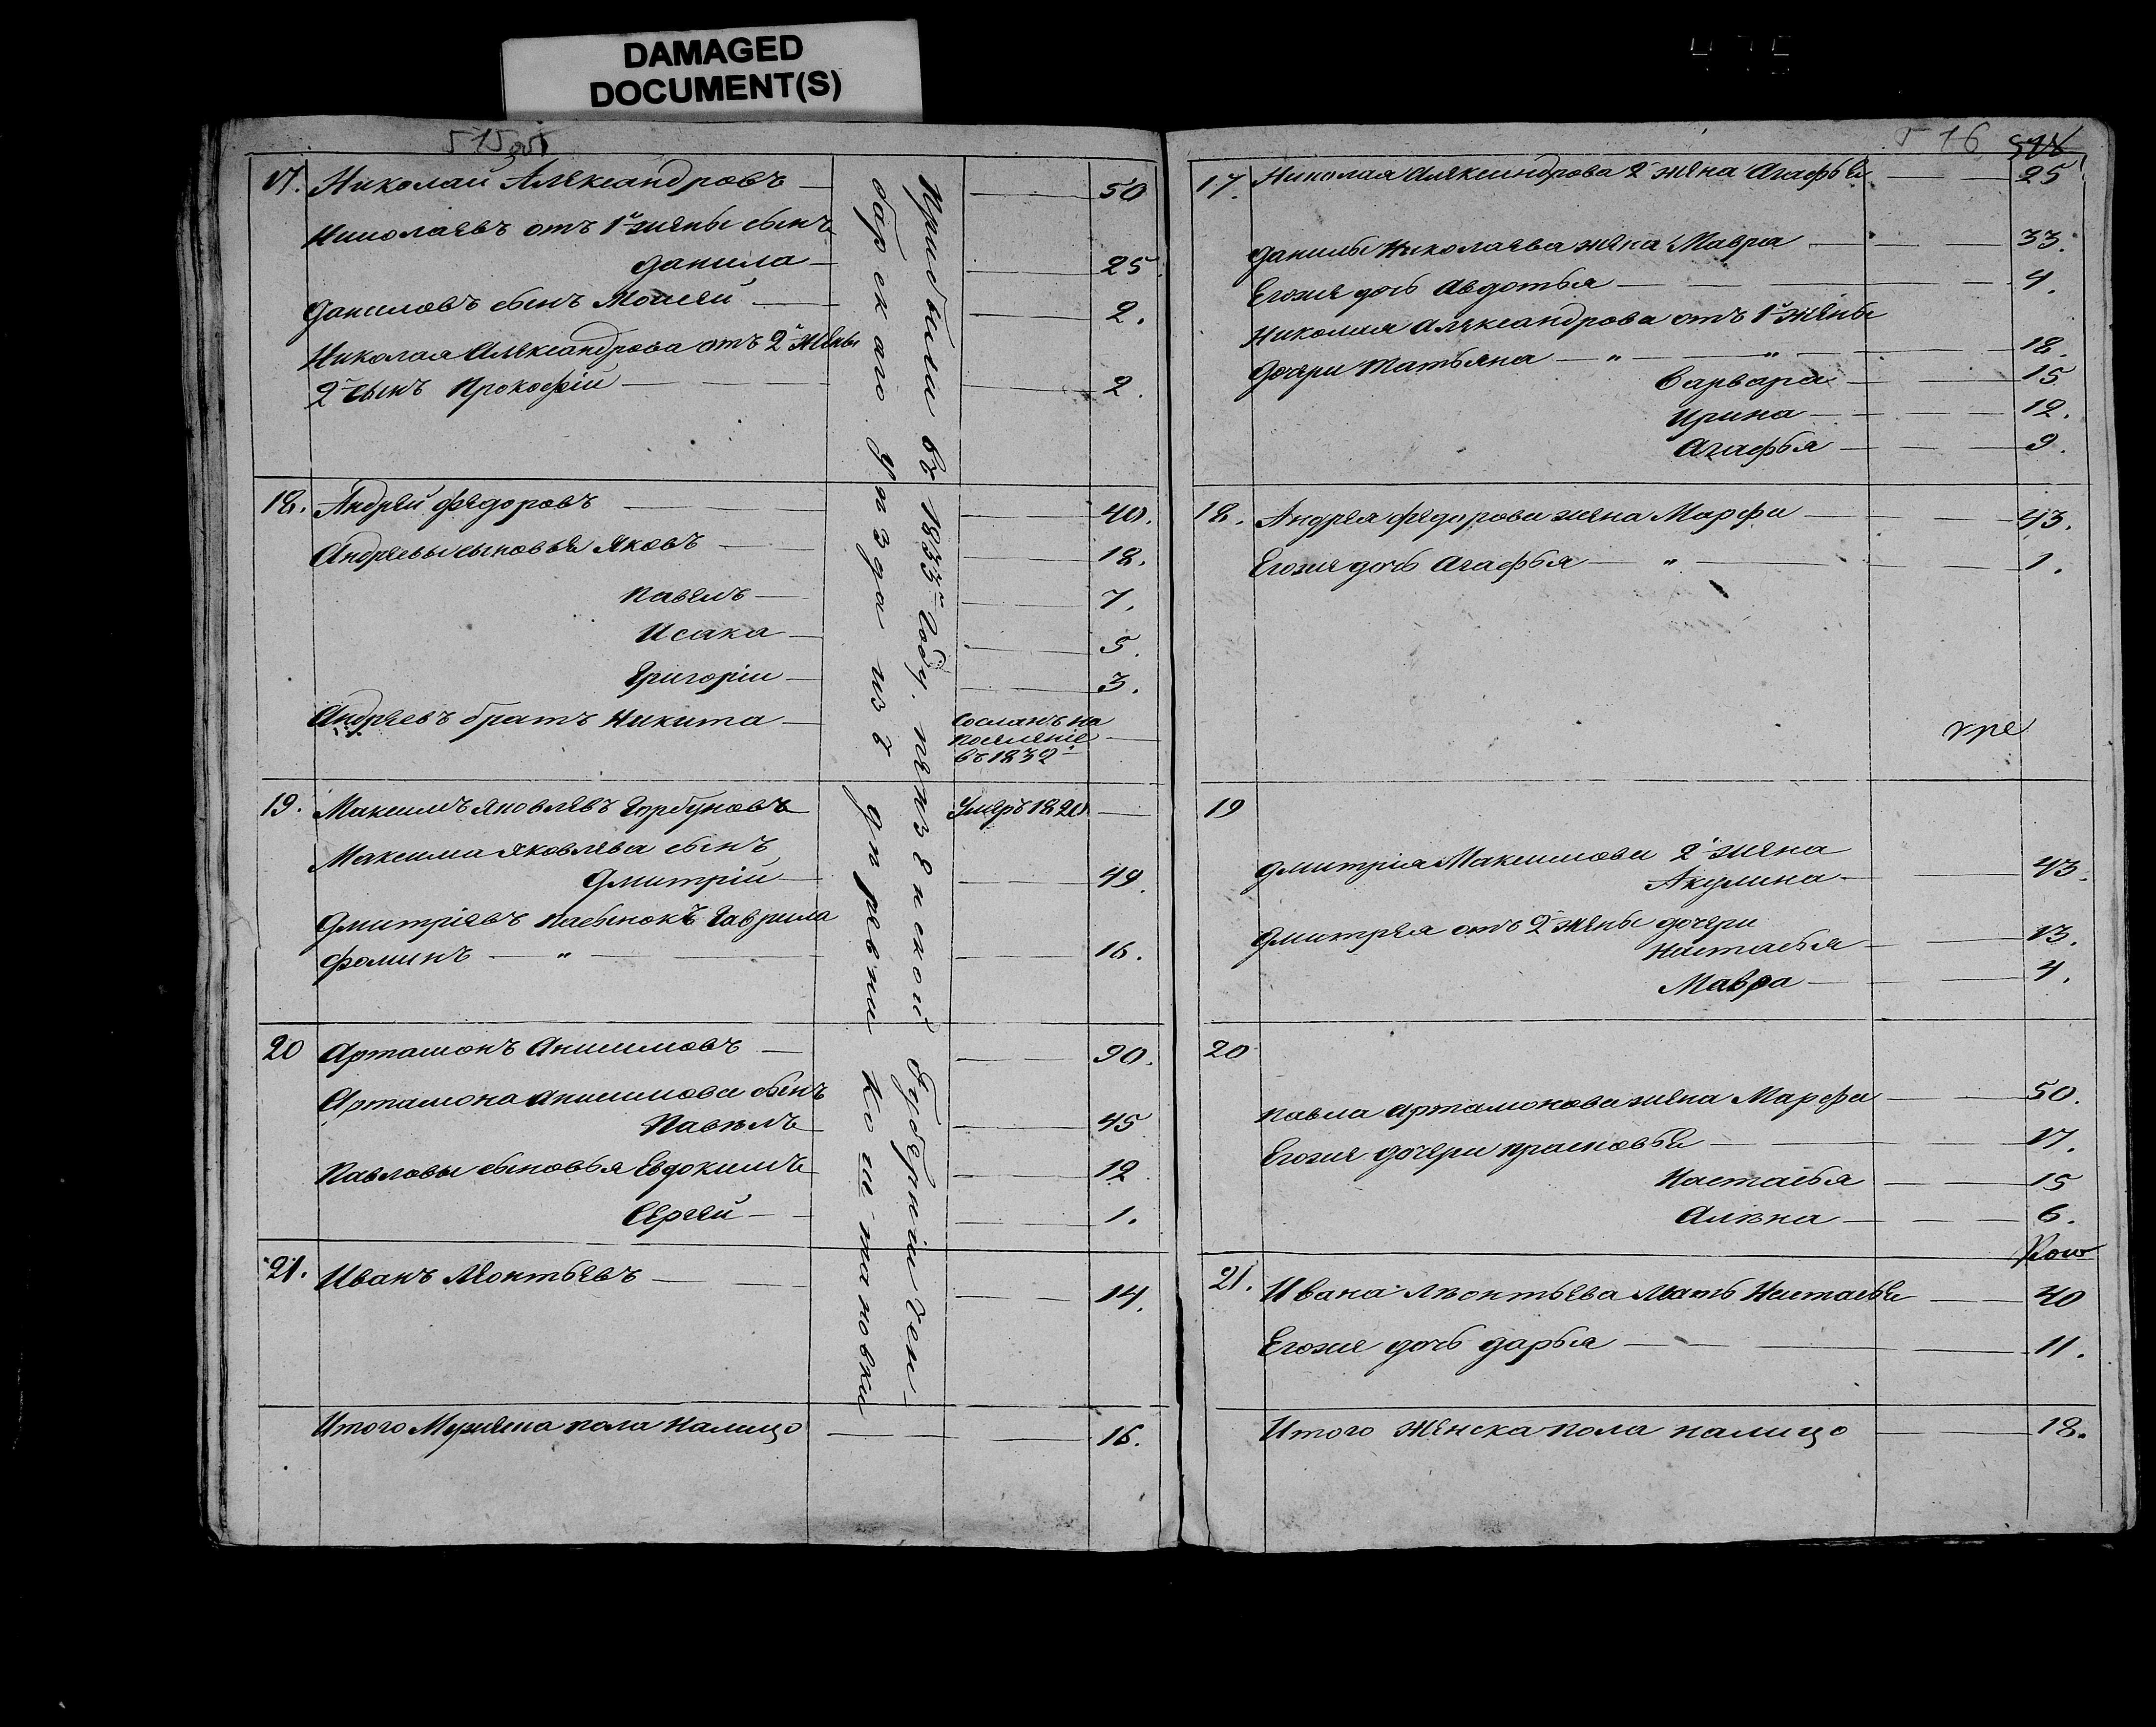 DAMAGED
DOCUMENT(S)
515об
17. Николай Александровъ — 50
Николаевъ отъ 1й жены сынъ
Данила — 25
Даниловъ сынъ Моисей — 2.
Николая Александрова отъ 2й жены
2й сынъ Прокофій — 2.
18. Андрей Федоровъ — 40.
Андреевы сыновья Яковъ — 18.
Павелъ — 7.
Исака — 5.
Григоріи — 3.
Андреевъ братъ Никита — Сосланъ на
поселеніе
въ 1832
19. Максимъ Яковлевъ Горбуновъ — Умеръ 1820
Максима Яковлева сынъ
Дмитріи — 49.
Дмитріевъ пасынокъ Гаврила
Фоминъ — " — 16.
20 Артамонъ Анисимовъ — 90.
Артамона Анисимова сынъ
Павелъ — 45
Павловы сыновья Евдокимъ — 12
Сергей — 1.
21. Иванъ Леонтьевъ — 14.
Итого Мужеска пола налицо — 16.
Прибыли въ 1833м Году. пензенской губерніи Чем-
барскаго уизда изъ деревни Кошкановки
516
17. Николая Александрова 2я жена Агафья — 25
Данилы Николаева жена Мавра — 33.
Егоже дочь Авдотья — 4.
Николая Александрова отъ 1й жены
дочери Татьяна — " — " — 18.
Варвара — 15
Ирина — 12.
Агафья — 9.
18. Андрея Федорова жена Марфа — 43.
Егоже дочь Агафья — " — 1.
19
Дмитрія Максимова 2я жена
Акулина — 43.
Дмитрея отъ 2й жены дочери
Настасья — 13.
Мавра — 4.
20
Павла Артамонова жена Марфа — 50.
Егоже дочери Прасковья — 17.
Настасья — 15
Алена — 6.
21. Ивана Леонтьева Мать Настасья — 40
Егоже дочь Дарья — 11.
Итого Женска пола налицо — 18.